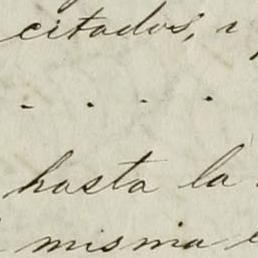 citados,
. . . .
hasta la
misma